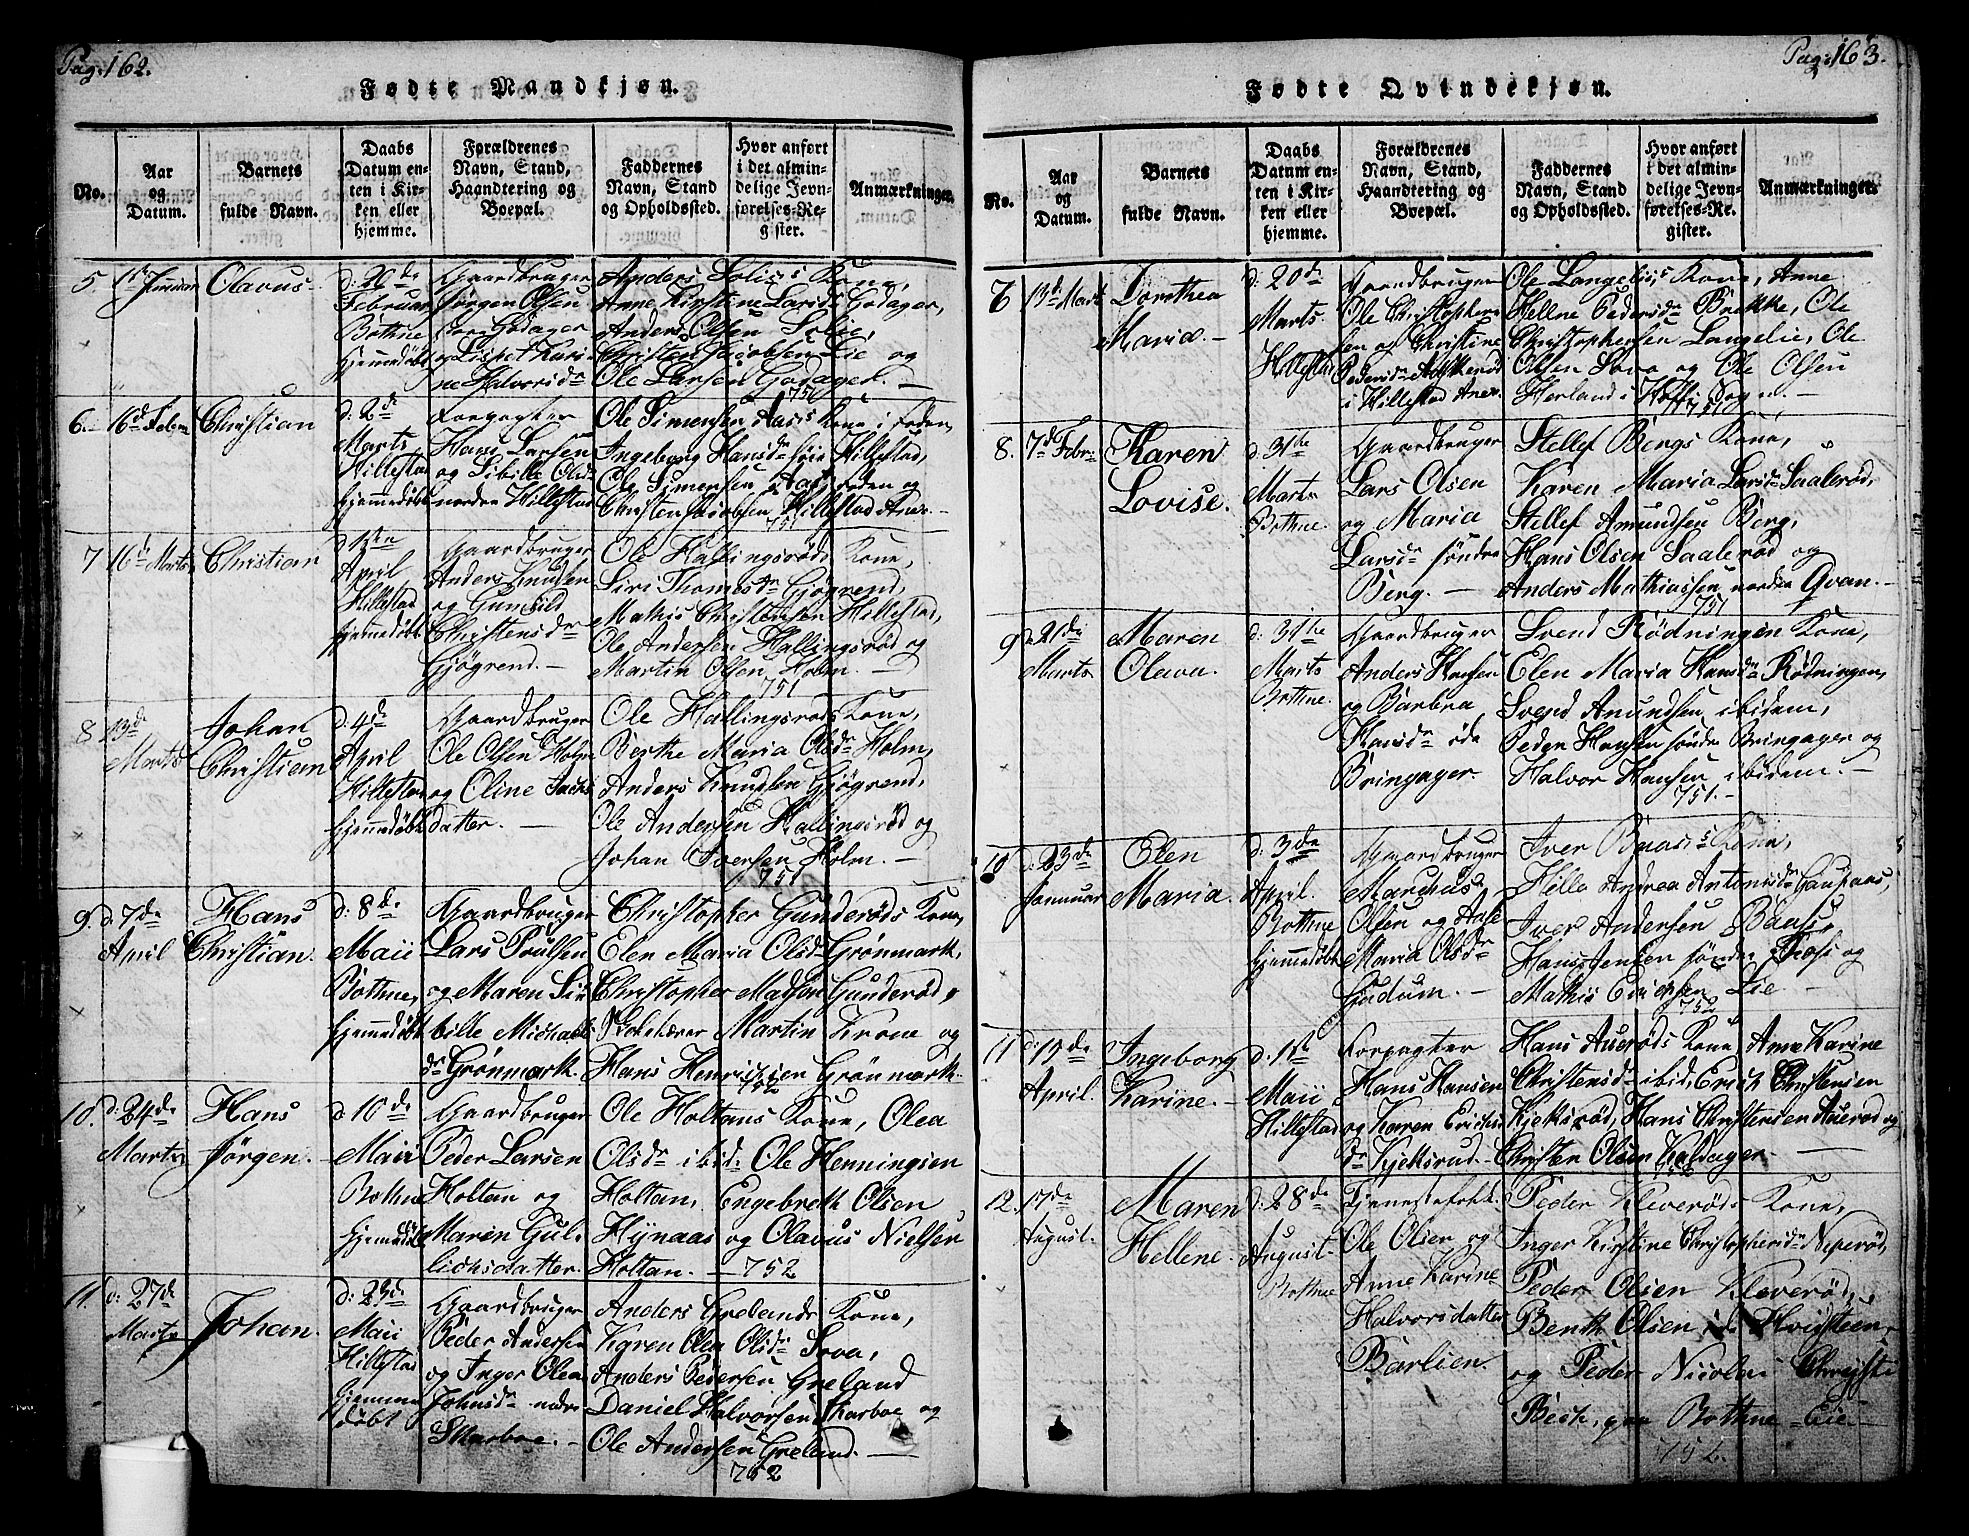 Pag: 162.
Fødte Mandkjøn.
No.
Aar
og
Datum.
Barnets
fulde Navn.
Daabs
Datum en-
ten i Kir-
ken eller
hjemme.
Forældrenes
Navn, Stand,
Haandtering og
Boepæl.
Faddernes
Navn, Stand
og Opholdssted.
Hvor anført
i det almin-
delige Jevn-
førelses-Re-
gister.
Anmærkninger.
5.
Olavus
Februar
Bothne
hjemmedøbt
Gaardbruger
Jørgen Olsen
Godager
Kone,
Anne Kirstine Larsdr Godager,
Anders Olsen Solie,
Christen Jacobsen Lie og
Ole Larsen Godager. –
751
6.
16d Febr
Christian
d: 2de
Marts
Hillestad
hjemmedøbt
Forpagter
Hans Larsen
og Sibille Olsdr
nordre Hillestad
Ole Simensen Aas's Kone i Foden,
Ingeborg Hansdr Hillestad,
Ole Simensen Aasfoden og
Christen Jacobsen Hillestad Anex. –
751
7
16d Marts
Christian
April
Hillestad
hjemmedøbt
Gaardbruger
Anders Knudsen
og Gunild
Christensdr
Gjøgrend. –
Ole Hallingsrøds Kone,
Siri Thomesdr Gjøgrend,
Mathis Christensen Hillestad,
Ole Andersen Hallingsrød og
Martin Olsen Holm –
751
8
13de
Marts
Johan
Christian
d: 4de
April
Hillestad
hjemmedøbt
Gaardbruger
Ole Olsen Holm
og Oline
datter. –
Ole Hallingsrøds Kone,
Berthe Maria Olsdr Holm,
Anders Knudsen Gjøgrend,
Ole Andersen Hallingsrød og
Johan Iversen Holm. –
751
9.
d: 7de
April
Hans
Christian.
d: 8de
Maii
Bothne,
hjemmedøbt
Gaardbruger
Lars Poulsen
og Maren Si-
bille Michaels
dr Grønmark.
Christopher Gunderøds Kone,
Elen Maria Olsdr Grønmark,
Christopher Madsen Gunderød,
Skolelærer Martin Krone og
Hans Henrichsen Grønmark.
752
10.
d: 24de
Marts
Hans
Jørgen.
d 10de
Maii
Bothne
hjemmedøbt
Gaardbruger
Peder Larsen
Holtan og
Maren Gul-
lichsdatter.
Ole Holtans Kone, Olea
Olsdr ibid: Ole Henningsen
Holtan, Engebreth Olsen
Hynaas og Olavus Nielsen
Holtan. – 752
11.
d: 27de
Marts
Johan.
d: 23de
Maii
Hillestad
hjemme
døbt
Gaardbruger
Peder Andersen
og Inger Olea
Johnsdr nedre
Skarboe. –
Anders Grelands Kone,
Karen Olea Olsdr Sova,
Anders Pedersen Greland
Daniel Halvorsen Skarboe og
Ole Andersen Greland. –
752
Pag: 163.
Fødte Qvindekjøn.
No.
Aar
og
Datum.
Barnets
fulde Navn.
Daabs
Datum en-
ten i Kir-
ken eller
hjemme.
Forældrenes
Navn, Stand,
Haandtering og
Boepæl.
Faddernes
Navn, Stand
og Opholdssted.
Hvor anført
i det almin-
delige Jevn-
førelses-Re-
gister.
Anmærkninger.
7
13d Marts
Dorthea
Maria. –
d: 20de
Marts
Hillestad
Gaardbruger
Ole Christopher-
sen og Christine
Pedersdr
i Hillestad Anex.
Ole Langelies Kone, Anne
Hellne Pedersdr Brekke, Ole
Christophersen Langelie, Ole
Olsen Sova og Ole Olsen
Herland i Hoff Sogn. –
751
8.
7d Febr:
Karen
Lovise.
d: 31te
Marts
Bothne.
Gaardbruger
Lars Olsen
og Maria
Larsdr søndre
Berg. –
Stellef Bergs Kone,
Karen Maria Larsdr Saalerød,
Stellef Amundsen Berg,
Hans Olsen Saalerød og
Anders Mathiassen nordre Qvan. –
751
9
21de
Marts
Maren
Olava.
d: 31te
Marts
Bothne.
Gaardbruger
Anders Hansen
og Barbra
Hansdr øde
Bringager.
Svend Rødningen Kone,
Elen Maria Hansdr Rødningen,
Svend Anundsen ibidem,
Peder Hansen søndre Bringager og
Halvor Hansen ibidem. –
751. –
10
d: 23de
Januar
Elen
Maria.
d: 3de
April.
Bothne
hjemmedøbt
Gaardbruger
Marchus
Olsen og Aase
Maria Olsdr
Gudum. –
Iver Baas's Kone,
Hella Andrea Antonisdr
Iver Andersen Baas,
Hans Jensen søndre og
Mathis Erichsen Lie –
752
11
d: 19de
April.
Ingeborg
Karine. –
d: 1ste
Maii
Hillestad
Forpagter
Hans Hansen
og Karen Erichs
dr Kjeksrud. –
Hans Auerøds Kone Anne Karine
Christensdr ibid, Erich Christensen
Kjeksrød, Hans Christensen Auerød og
Christen Olsen Kaldager. –
752
12.
17de
August.
Maren
Hellene.
d: 28de
August
Bothne
Tjenestefolk
Ole Olsen og
Anne Karine
Halvorsdatter
Barlien.
Peder Kleverøds Kone,
Inger Kirstine Christophersdr Neperød,
Peder Olsen Kleverød,
Benth Olsen Hvidsteen
og Peder Nicolai
Bech, paa Bothne-Eie –
752.